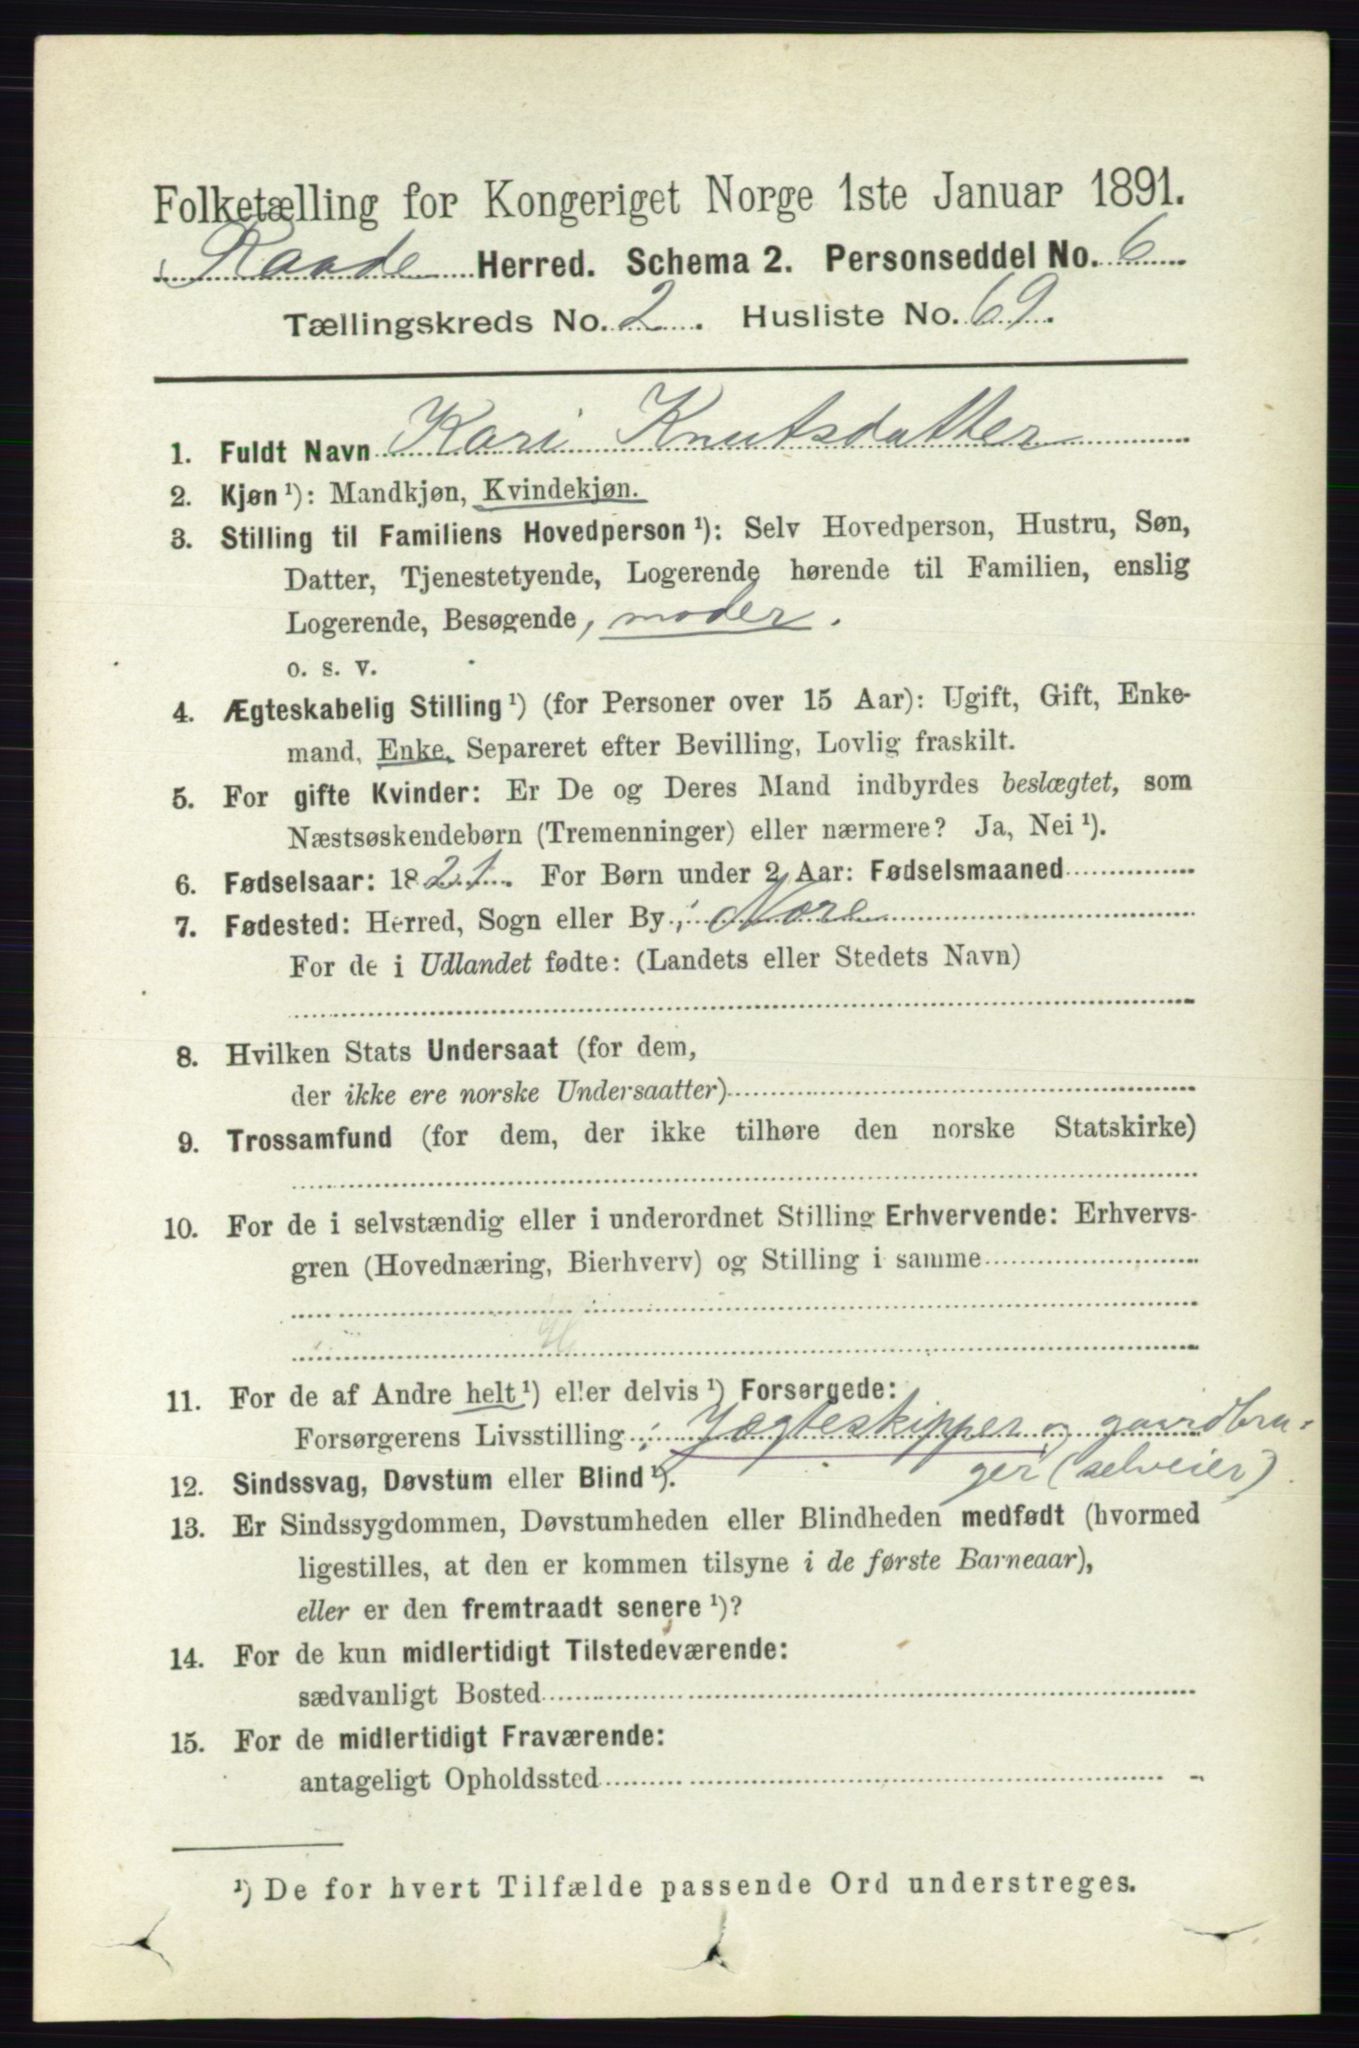 Folketælling for Kongeriget Norge 1ste Januar 1891.
Raade Herred. Schema 2. Personseddel No. 6
Tællingskreds No. 2. Husliste No. 69.
1. Fuldt Navn Kari Knutsdatter
2. Kjøn ¹): Mandkjøn, Kvindekjøn.
3. Stilling til Familiens Hovedperson ¹): Selv Hovedperson, Hustru, Søn,
Datter, Tjenestetyende, Logerende hørende til Familien, enslig
Logerende, Besøgende, moder.
o. s. v.
4. Ægteskabelig Stilling ¹) (for Personer over 15 Aar): Ugift, Gift, Enke-
mand, Enke, Separeret efter Bevilling, Lovlig fraskilt.
5. For gifte Kvinder: Er De og Deres Mand indbyrdes beslægtet, som
Næstsøskendebørn (Tremenninger) eller nærmere? Ja, Nei ¹).
6. Fødselsaar: 1821. For Børn under 2 Aar: Fødselsmaaned
7. Fødested: Herred, Sogn eller By; Nore
For de i Udlandet fødte: (Landets eller Stedets Navn)
8. Hvilken Stats Undersaat (for dem,
der ikke ere norske Undersaatter)
9. Trossamfund (for dem, der ikke tilhøre den norske Statskirke)
10. For de i selvstændig eller i underordnet Stilling Erhvervende: Erhvervs-
gren (Hovednæring, Bierhverv) og Stilling i samme
11. For de af Andre helt ¹) eller delvis ¹) Forsørgede:
Forsørgerens Livsstilling; Jægteskipper og gaardbru-
ger (selveier)
12. Sindssvag, Døvstum eller Blind ¹).
13. Er Sindssygdommen, Døvstumheden eller Blindheden medfødt (hvormed
ligestilles, at den er kommen tilsyne i de første Barneaar),
eller er den fremtraadt senere ¹)?
14. For de kun midlertidigt Tilstedeværende:
sædvanligt Bosted
15. For de midlertidigt Fraværende:
antageligt Opholdssted
¹) De for hvert Tilfælde passende Ord understreges.